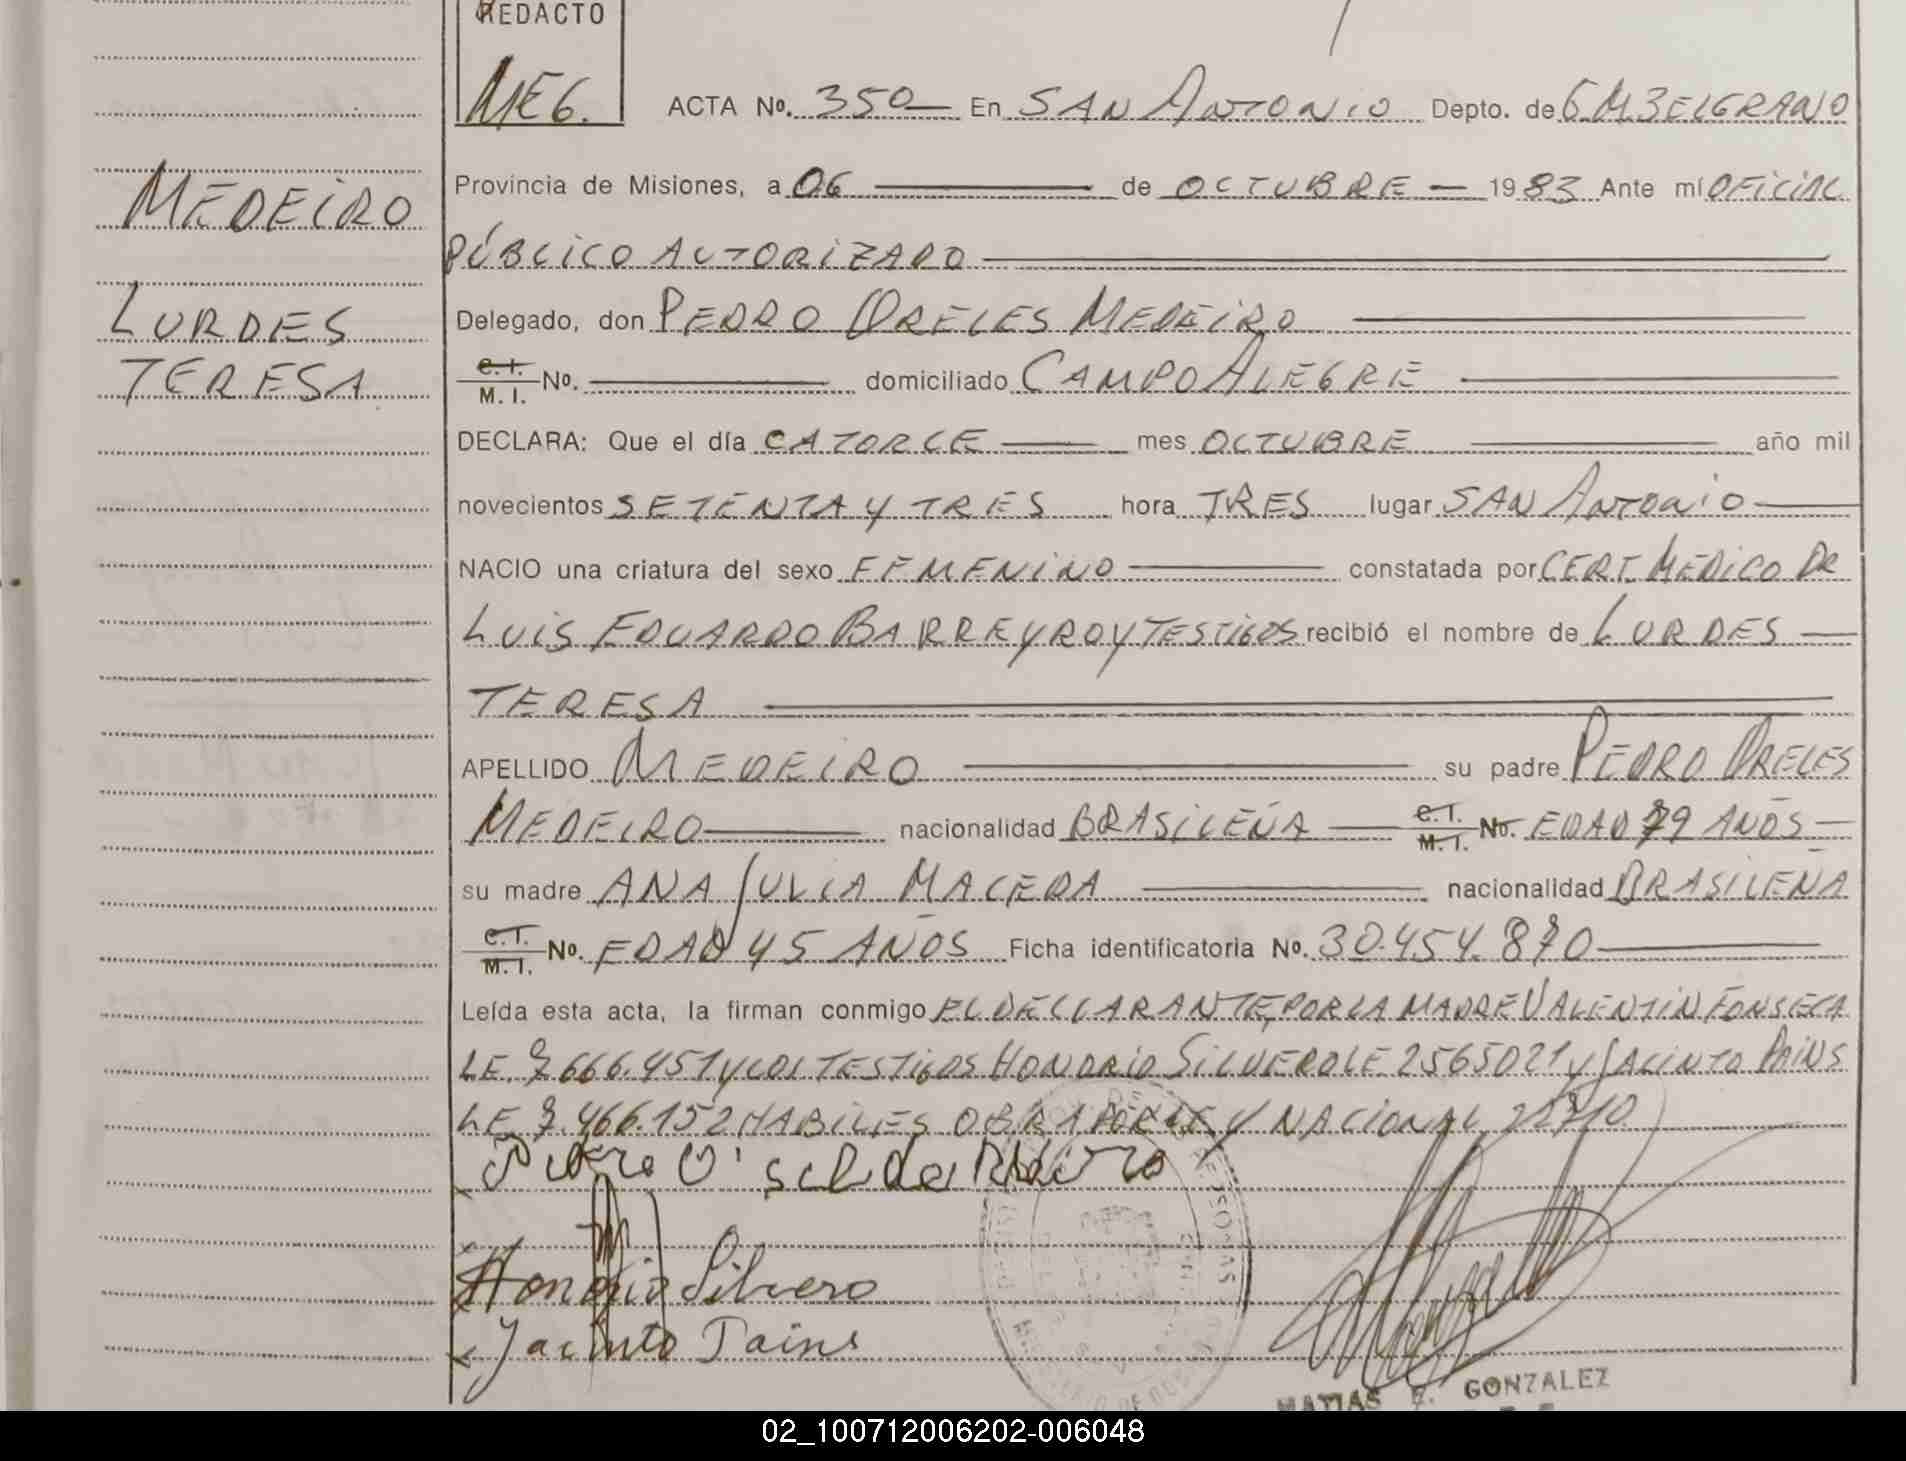 REDACTO
MEG.
ACTA Nº. 350 En SAN ANTONIO Depto. de GM BELGRANO
Provincia de Misiones, a 06 de OCTUBRE 1983 Ante mí OFICIAL
PÚBLICO AUTORIZADO
MEDEIRO
Delegado, don PEDRO ORELES MEDEIRO
LURDES
TERESA
C.I. M.I. Nº. domiciliado CAMPO ALEGRE
DECLARA: Que el día CATORCE mes OCTUBRE año mil
novecientos SETENTA Y TRES hora TRES lugar SAN ANTONIO
NACIO una criatura del sexo FEMENINO constatada por CERT. MEDICO DR
LUIS EDUARDO BARREYRO Y TESTIGOS recibió el nombre de LURDES
TERESA
APELLIDO MEDEIRO su padre PEDRO ORELES
MEDEIRO nacionalidad BRASILEÑA C.I. M.I. No. EDAD 79 AÑOS
su madre ANA JULIA MACEDA nacionalidad BRASILEÑA
C.I. M.I. Nº. EDAD 45 AÑOS Ficha identificatoria Nº. 30.454.870
Leída esta acta, la firman conmigo EL DECLARANTE, POR LA MADRE VALENTIN FONSECA
LE 7.666.451 Y LOS TESTIGOS HONORIO SILVERO LE 2565021 Y JACINTO PAINS
LE 7.466.152 HABILES OBRA Y NACIONAL
Honorio Silvero
Jacinto Pains
MATIAS E. GONZALEZ
02_100712006202-006048